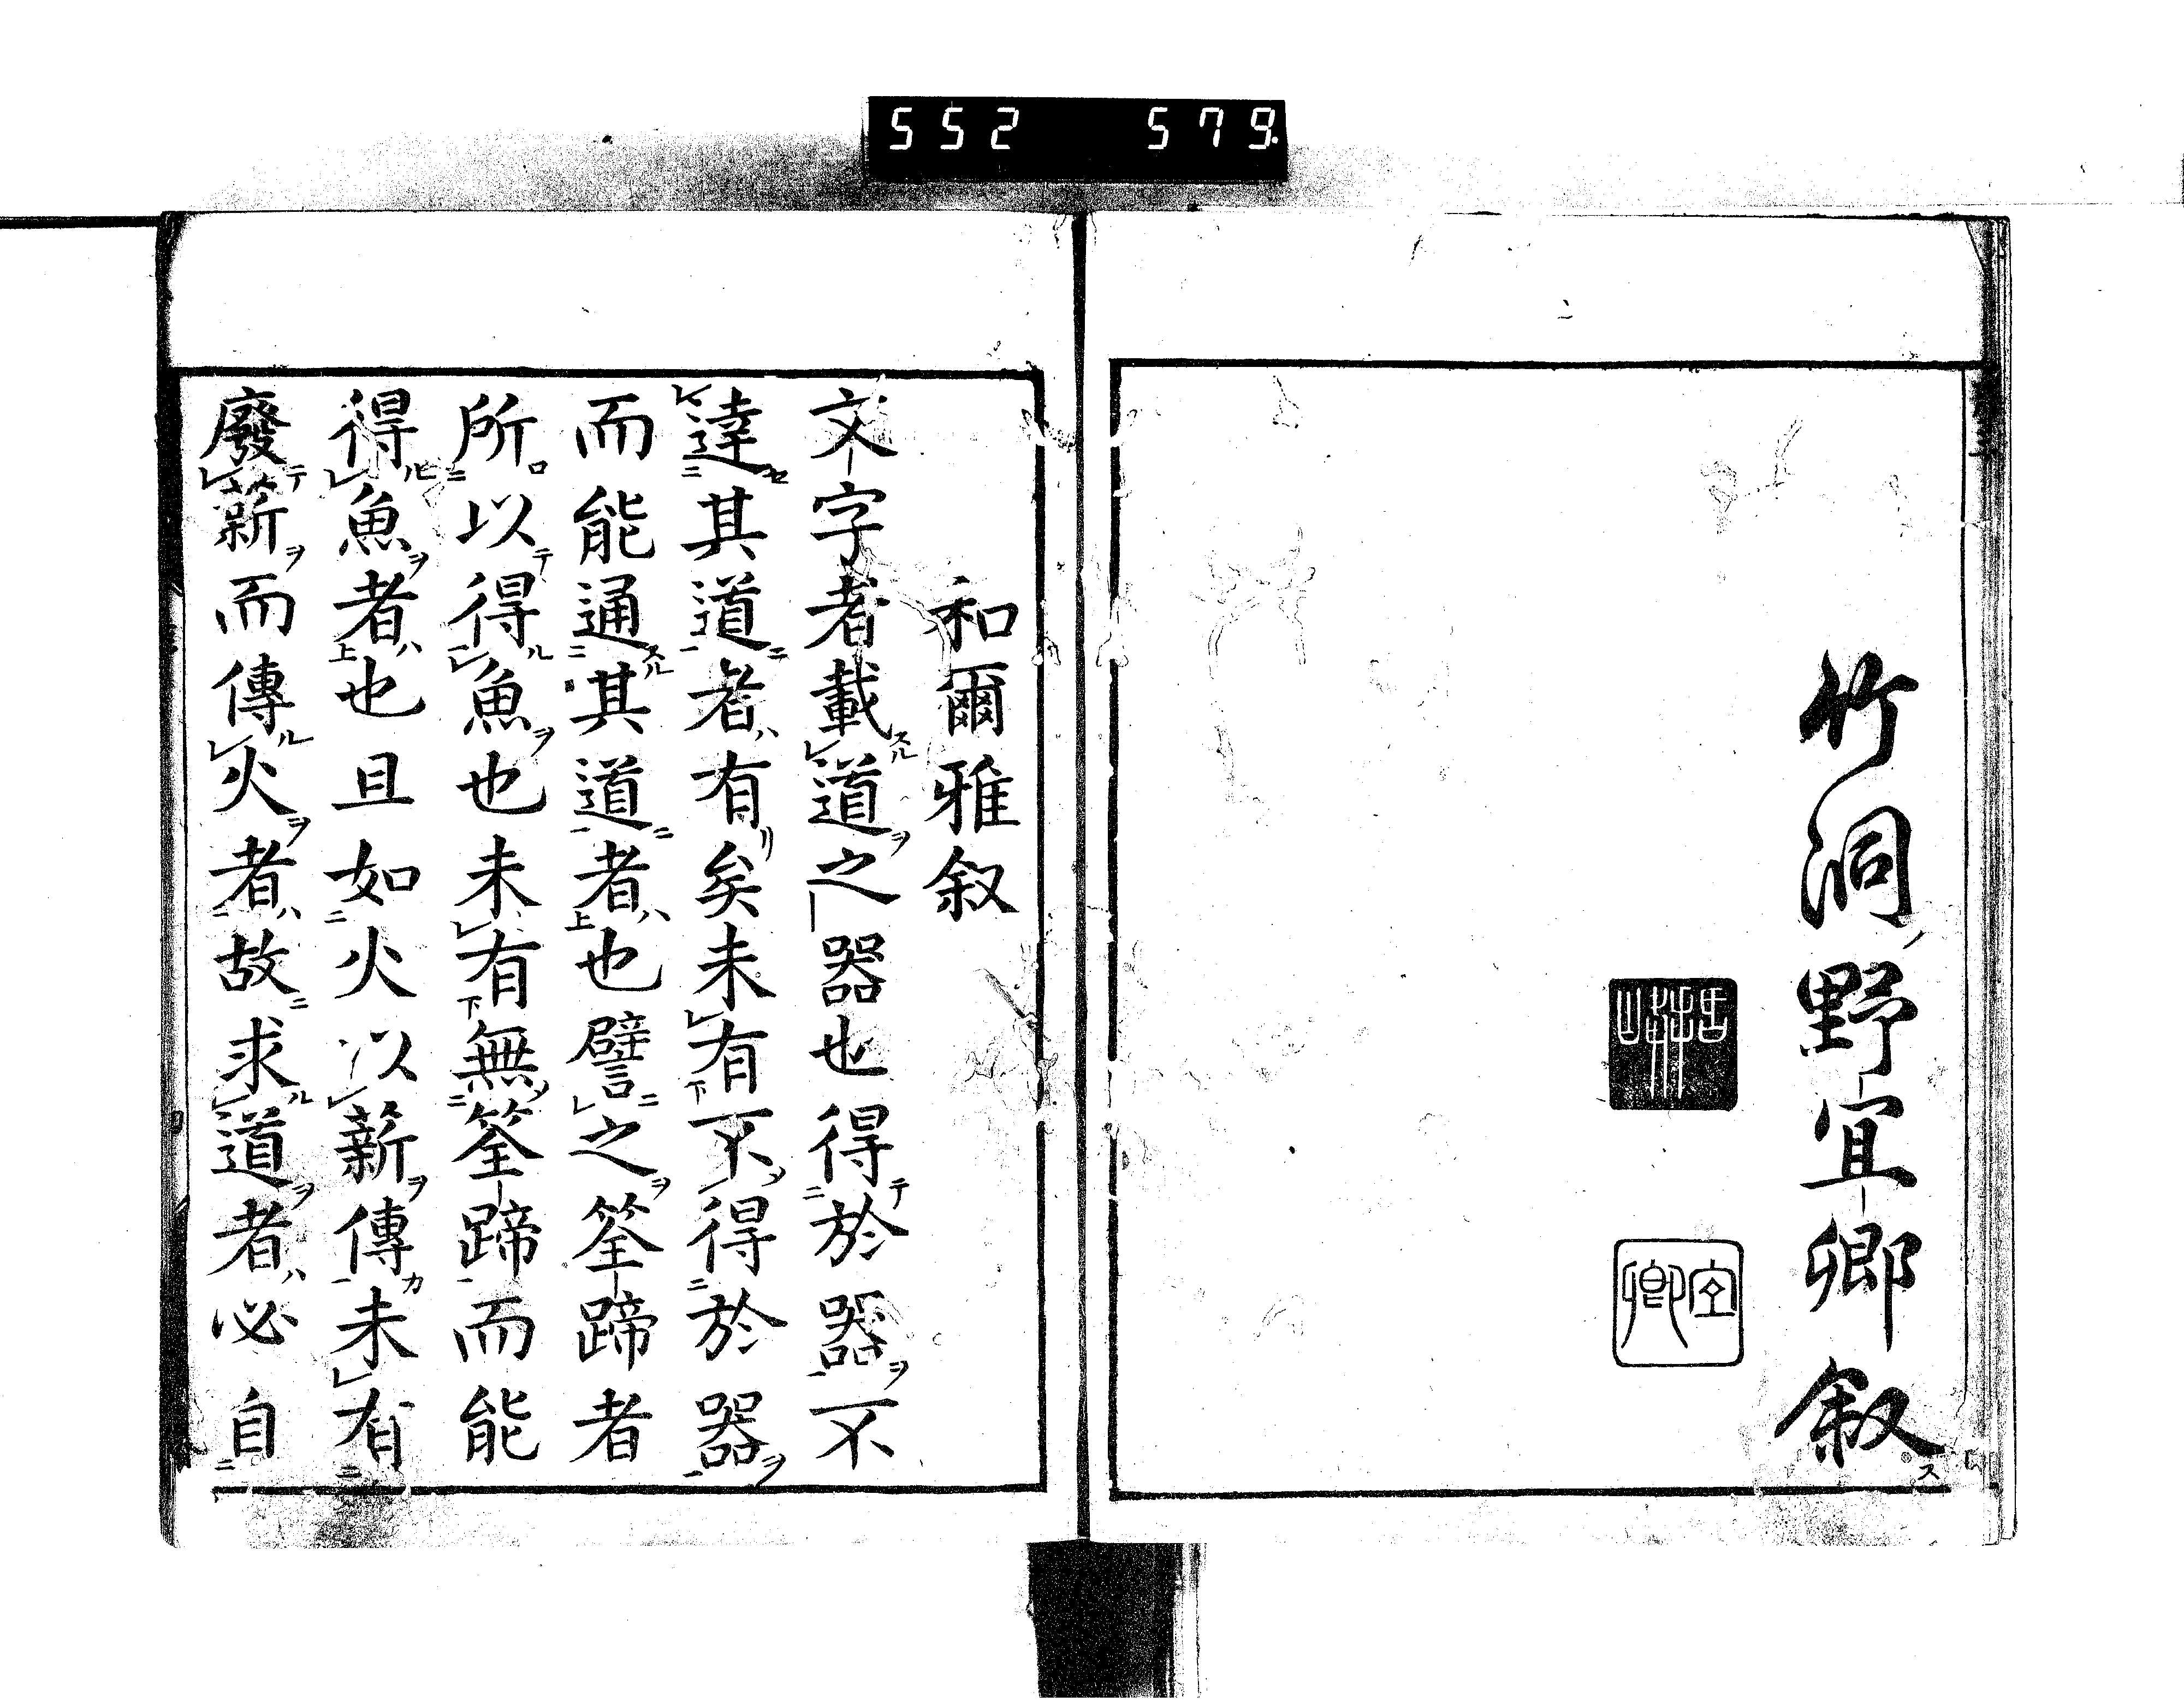 552 579.
竹洞野宜卿叙
宜卿
和爾雅叙
文字者載道之器也得於器不
達其道者有矣未有不得於器
而能通其道者也譬之筌蹄者
所以得魚也未有無筌蹄而能
得魚者也且如火以薪傳未有
廢薪而傳火者故求道者必自